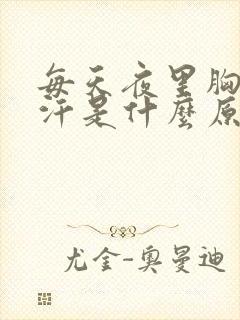 每天夜里胸
汗是什麼原
尤金-奥曼迪